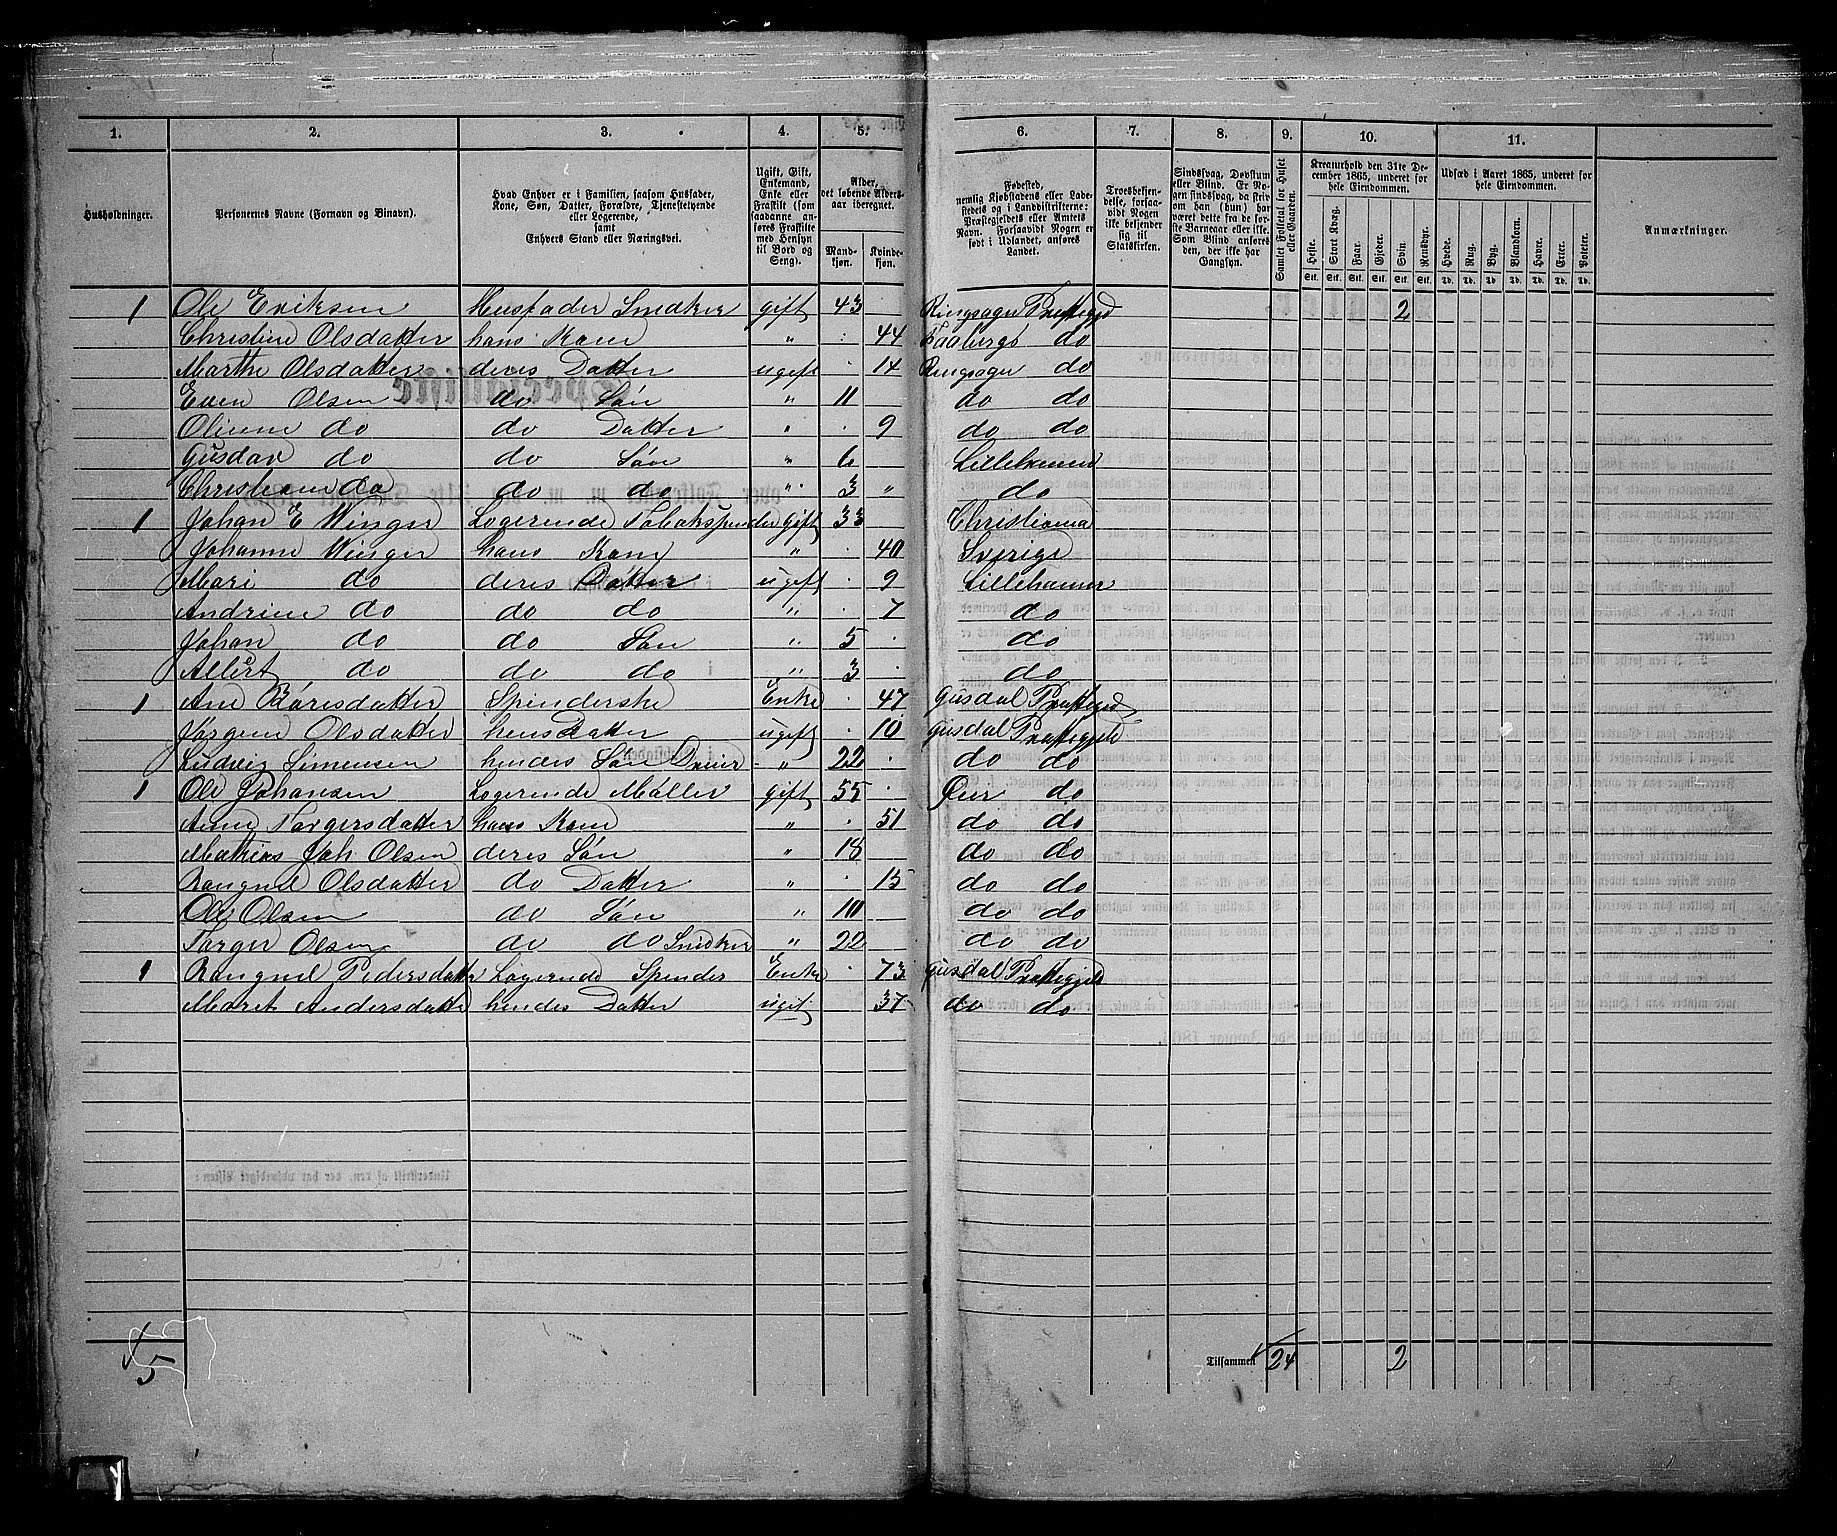 1. 2. 3. 4. 5. 6. 7. 8. 9. 10. 11.
Husholdninger. Personernes Navne (Fornavn og Binavn). Hvad Enhver er i Familien, saasom Husfader, Kone, Søn, Datter, Forældre, Tjenestetyende eller Logerende, samt Enhvers Stand eller Næringsvei. Ugift, Gift, Enkemand, Enke eller Fraskilt (som saadanne anføres Fraskilte med Hensyn til Bord og Seng). Alder, det løbende Aldersaar iberegnet. Mandkjøn. Kvindekjøn. Fødested, nemlig Kjøbstadens eller Ladestedets og i Landdistrikterne: Præstegjeldets eller Amtets Navn. Forsaavidt Nogen er født i Udlandet, anføres Landet. Troesbekjendelse, forsaavidt Nogen ikke bekjender sig til Statskirken. Sindssvag, Døvstum eller Blind. Er Nogen sindssvag, da skriv om han (hun) har været dette fra de første Barneaar eller ikke. Som Blind anføres den, der ikke har Gangsyn. Samlet Folketal for Huset eller Gaarden. Kreaturhold den 31te December 1865, underet for hele Eiendommen. Udsæd i Aaret 1865, underet for hele Eiendommen. Anmærkninger.
Heste. Stort Kvæg. Faar. Gjeder. Svin. Rensdyr. Hvede. Rug. Byg. Blandkorn. Havre. Erter. Poteter.
Stk. Stk. Stk. Stk. Stk. Stk. Td. Td. Td. Td. Td. Td. Td.
1 Ole Eriksen Husfader Snedker gift 43 Ringsager Præstegjd 2
Christine Olsdatter hans Kone " 44 Faaberg do
Marthe Olsdatter deres Datter ugift 14 Ringsager do
Even Olsen do Søn " 11 do do
Oline do do Datter " 9 do do
Gusdav do do Søn " 6 Lillehammer
Christian do do do " 3 " do
1 Johan E Winger Logerende Tobakspinder gift 33 Christiania
Johanne Winger hans Kone " 40 Sverige
Mari do deres Datter ugift 9 Lillehamer
Andrine do do do " 7 do
Johan do do Søn " 5 do
Albert do do do " 3 do
1 Ane Böresdatter Spinderske Enke 47 Gusdal Præstegjd
Jörgine Olsdatter hens Datter ugift 10 Gusdal Præstegjeld
Ludvig Simensen hendes Søn " 22 do do
1 Ole Johansen Logerende Møller gift 55 Øier do
Anne Torgersdatter hans Kone " 51 do do
Mathias Joh Olsen deres Søn " 18 do do
Rangnil Olsdatter do Datter " 15 do do
Ole Olsen do Søn " 10 do do
Torger Olsen do do Snedker " 22 do do
1 Rangnil Pedersdatter Logerende Spinder Enke 73 Gusdal Præstegjeld
Maret Andersdatter hendes Datter ugift 37 do do
5 Tilsammen 24 2